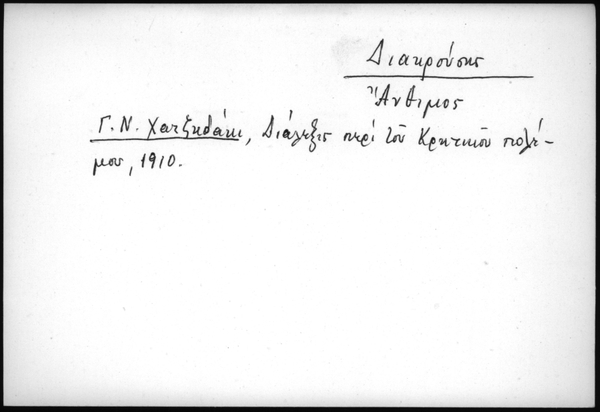 Διακρούσης
Ἄνθιμος
Γ. Ν. Χατζηδάκι, Διάλεξις περὶ τοῦ Κρητικοῦ πολέ-
μου, 1910.